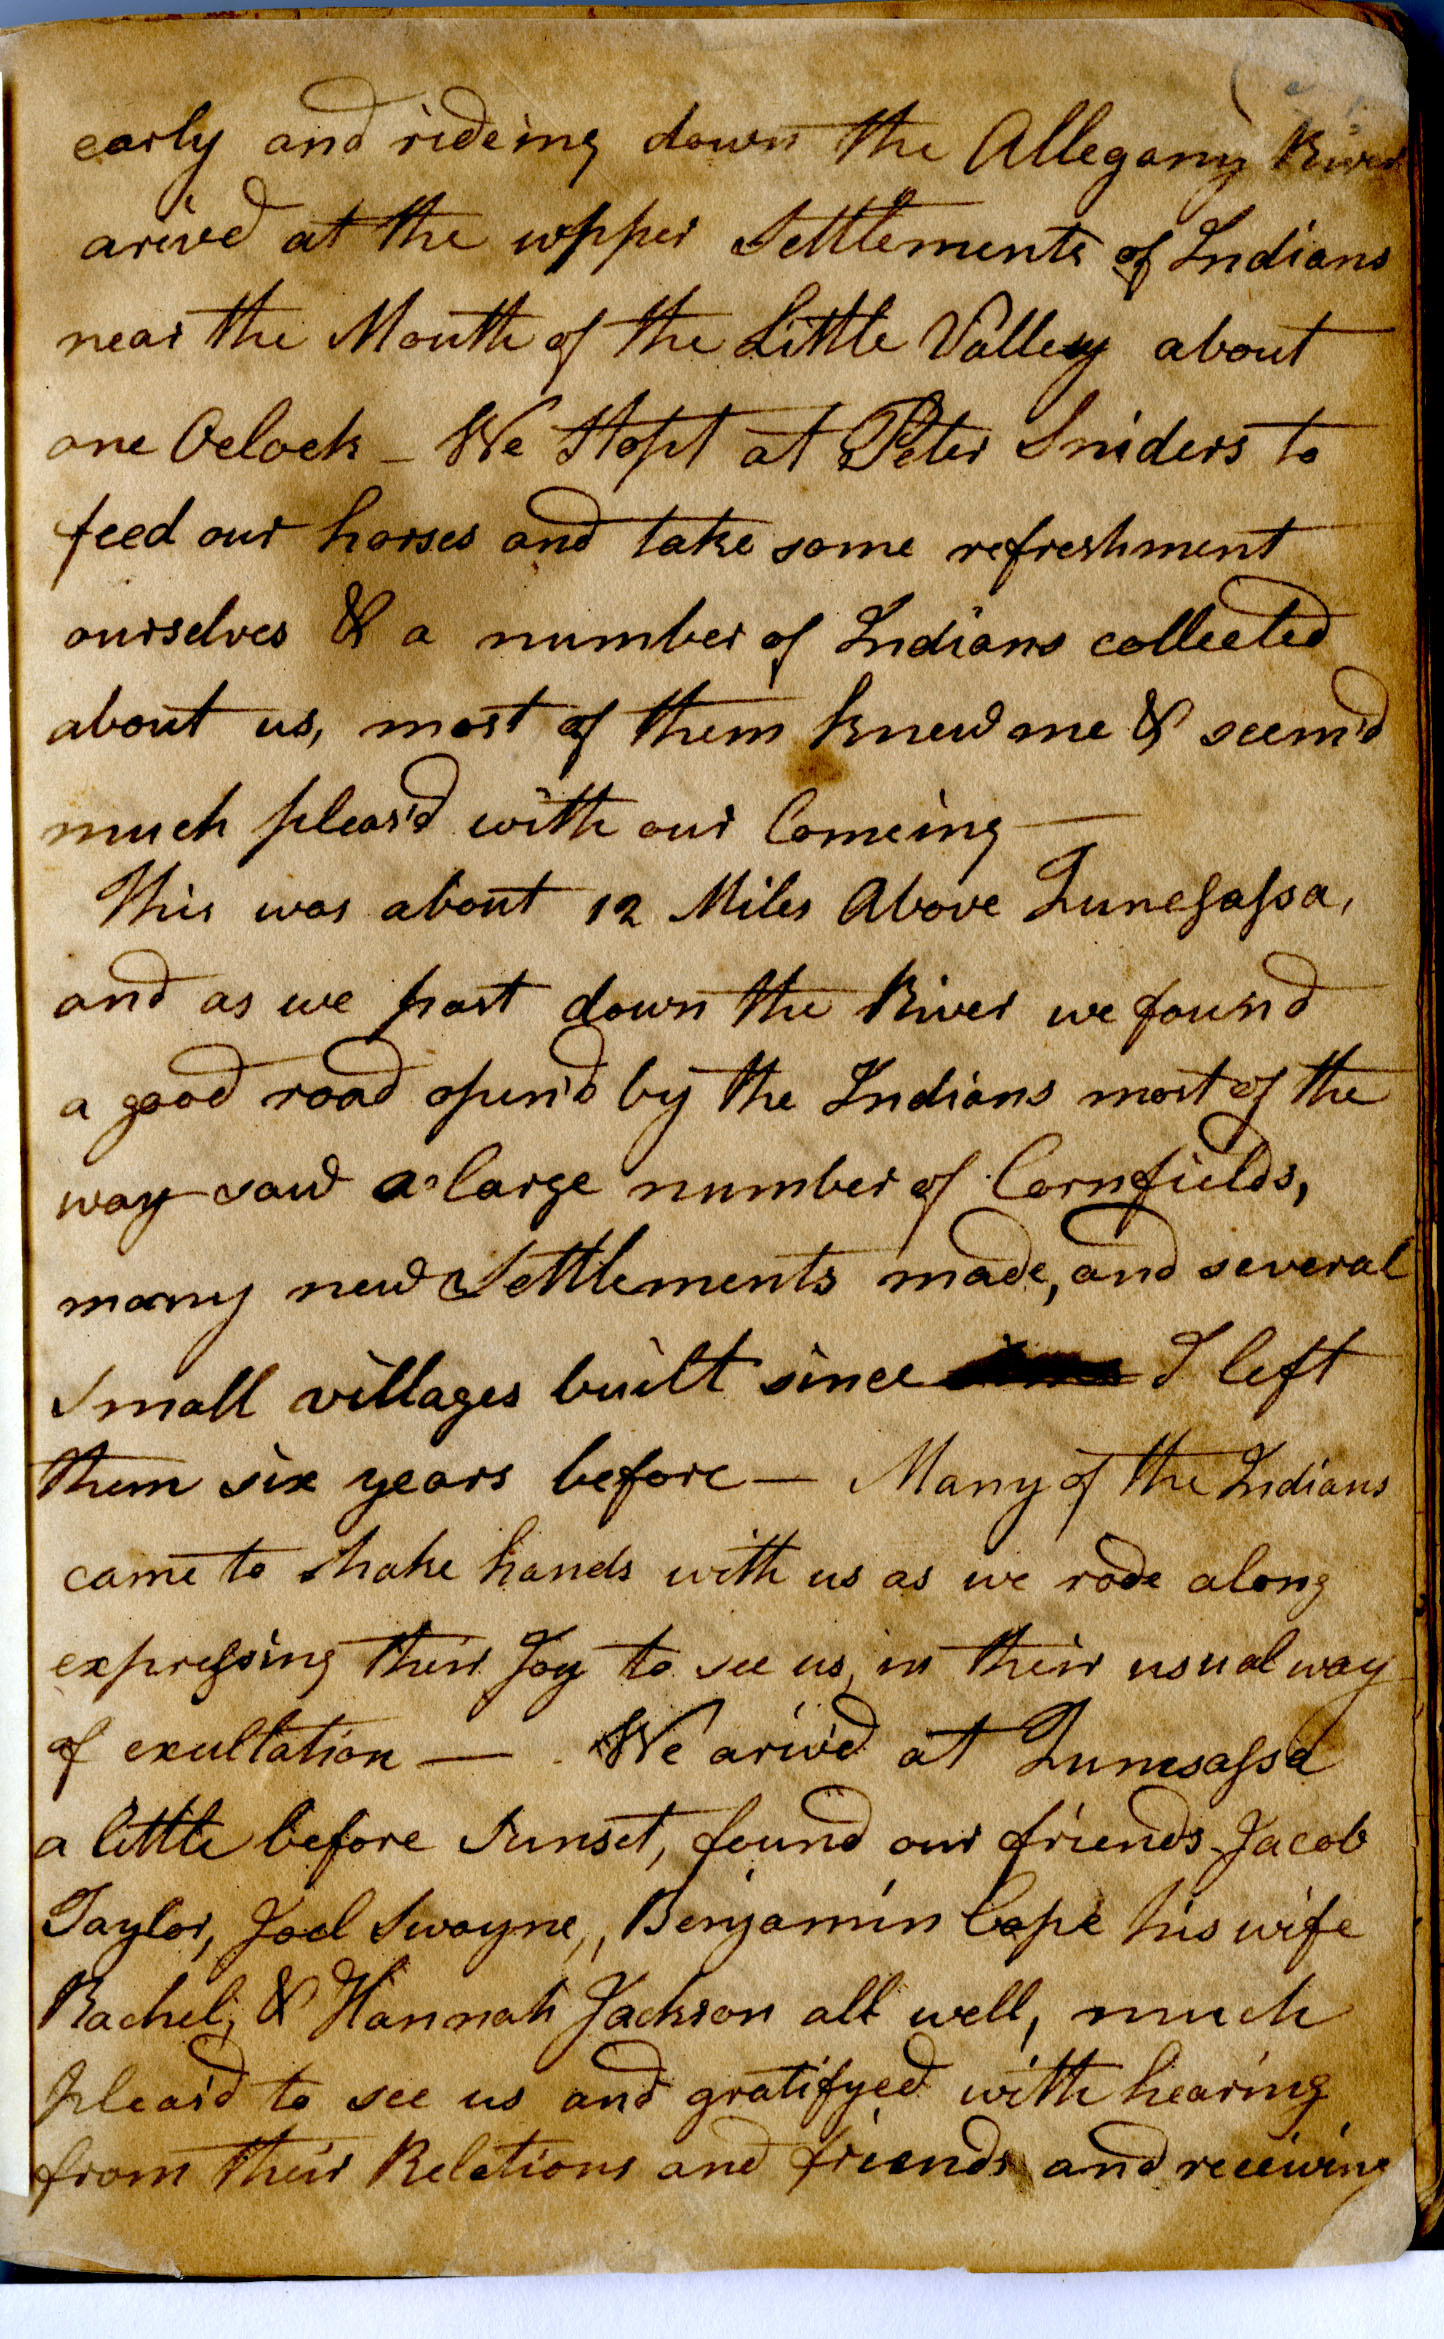 early and rideing down the Allegany River
arived at the upper Settlements of Indians
near the Mouth of the Little Valley about
one Oclock – We Stopt at Peter Sniders to
feed our horses and take some refreshment
ourselves & a number of Indians collected
about us, most of them knew me & seem'd
much pleas'd with our Comeing —
This was about 12 Miles Above Tunesassa,
and as we past down the River we found
a good road open'd by the Indians most of the
way saw a large number of Cornfields,
many new Settlements made, and several
Small villages built since I left
them six years before — Many of the Indians
came to shake hands with us as we rode along
expressing their Joy to see us, in their usual way
of exultation — We ariv'd at Tunesassa
a little before Sunset, found our friends Jacob
Taylor, Joel Swayne, Benjamin Cope his wife
Rachel, & Hannah Jackson all well, much
pleas'd to see us and gratifyed with hearing
from their Relations and friends and receiving